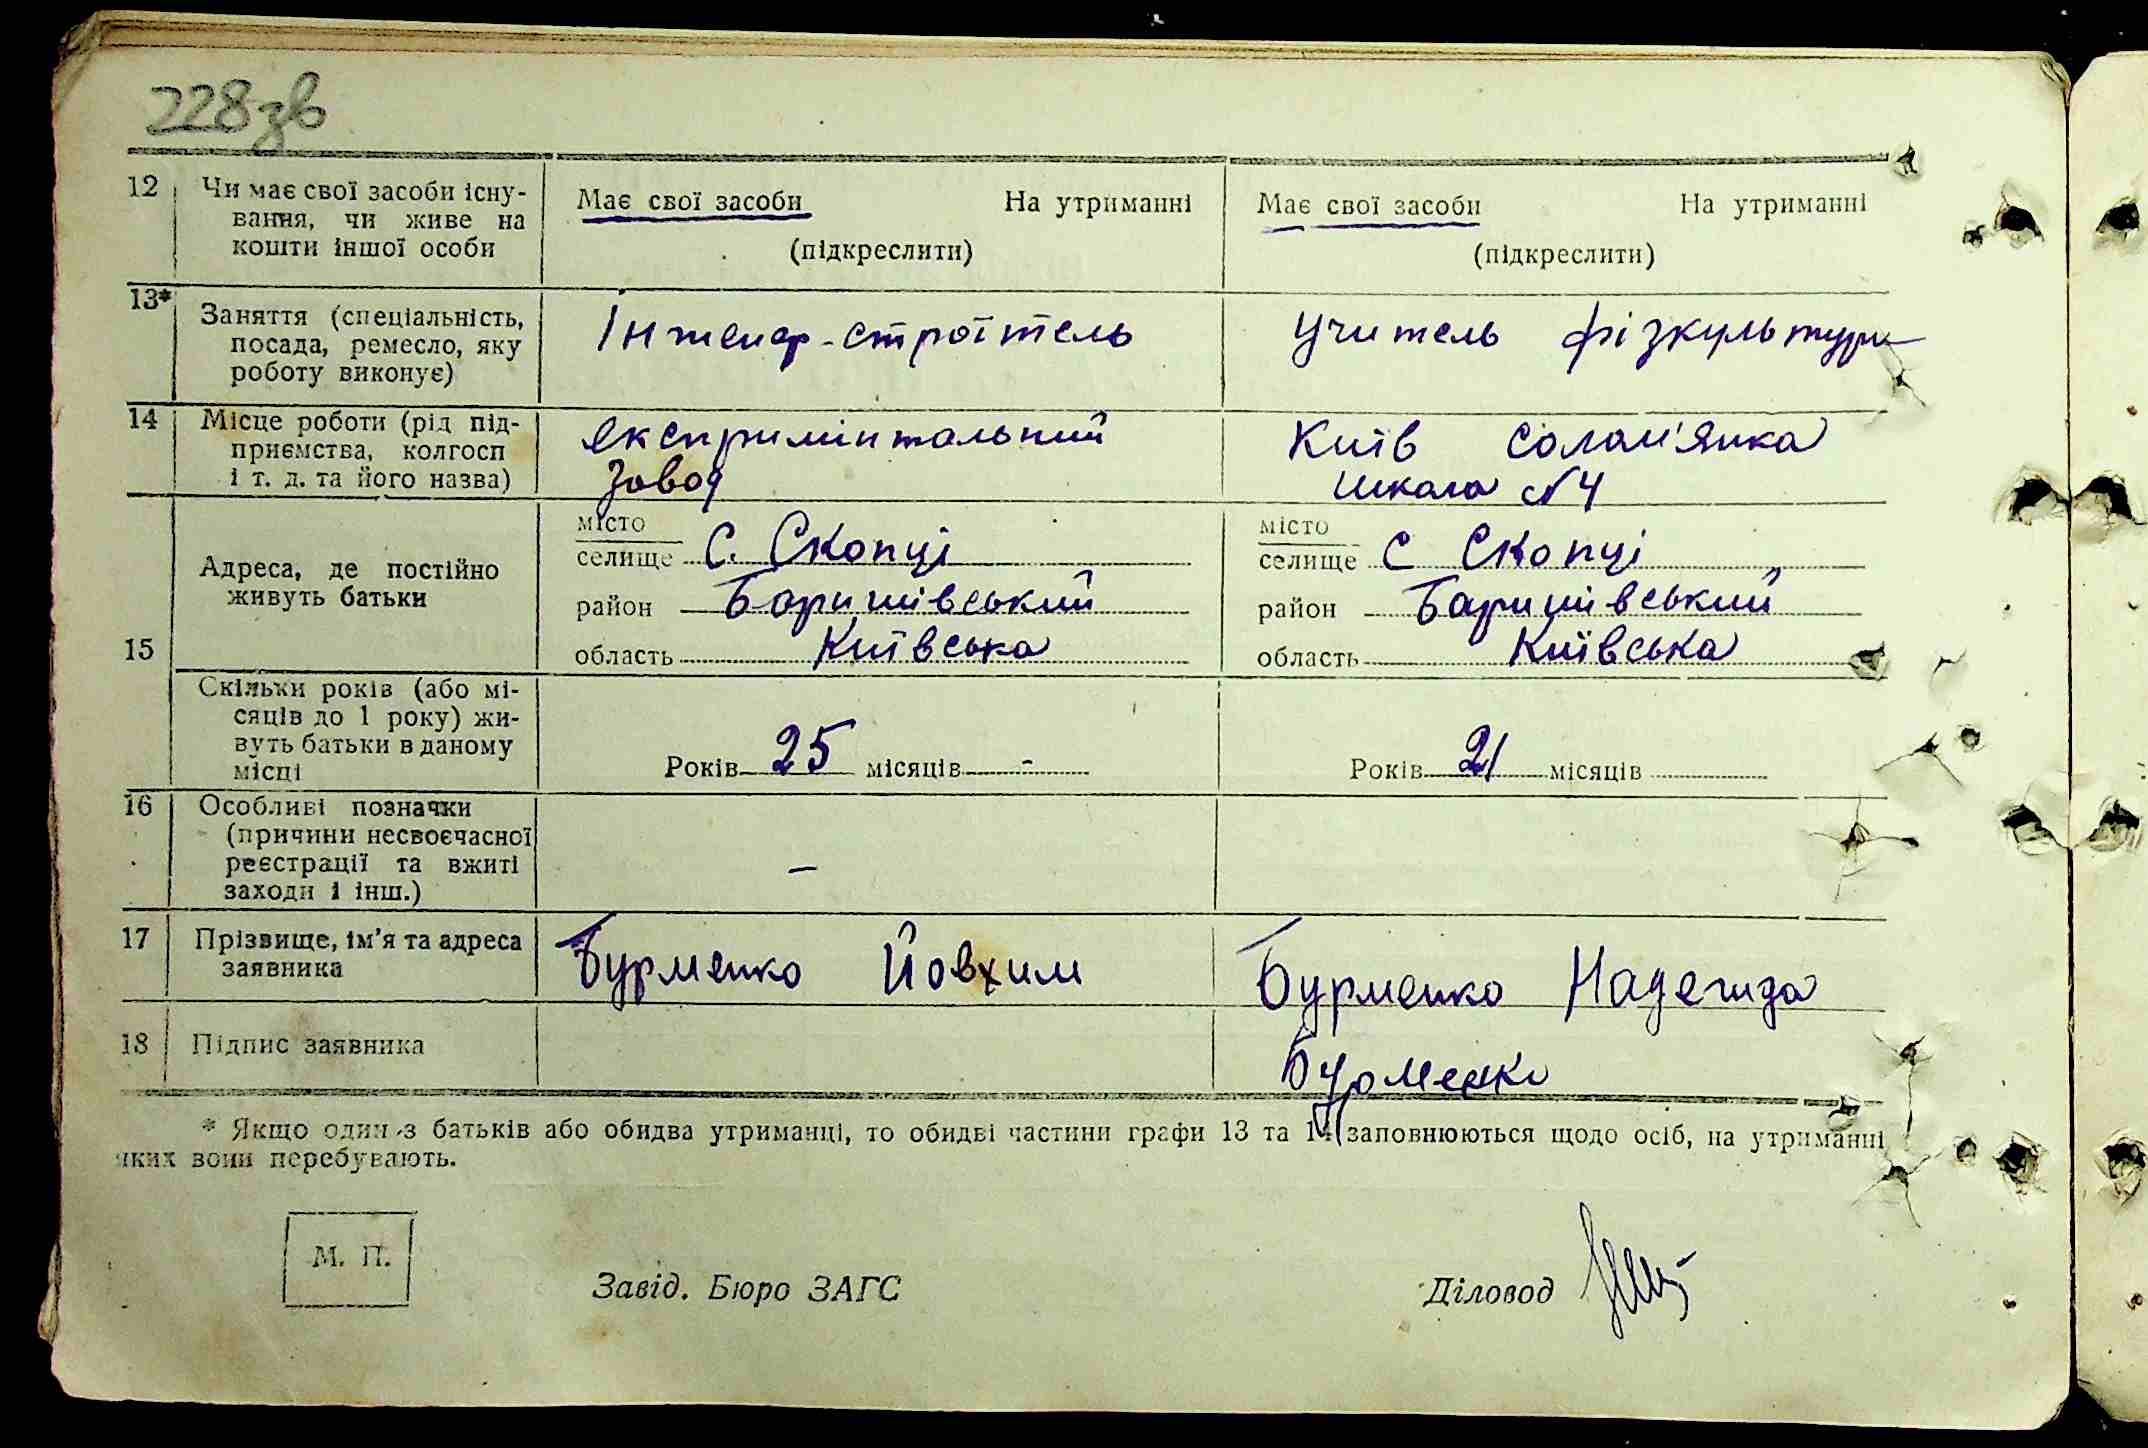 228зв
12 Чи має свої засоби існу- Має свої засоби На утриманні Має свої засоби На утриманні
вання, чи живе на
кошти іншої особи (підкреслити) (підкреслити)
13* Заняття (спеціальність, Інженер-строїтель учитель фізкультури
посада, ремесло, яку
роботу виконує)
14 Місце роботи (рід під- експримінтальний Київ Солом'янка
приємства, колгосп завод школа №4
і т. д. та його назва)
15 Адреса, де постійно живуть батьки
місто
селище с. Скопці
район Баришівський
область Київська
місто
селище с Скопці
район Баришівський
область Київська
Скільки років (або мі-
сяців до 1 року) жи-
вуть батьки в даному
місці
Років 25 місяців - Років 21 місяців
16 Особливі позначки
(причини несвоєчасної
реєстрації та вжиті
заходи і інш.) –
17 Прізвище, ім'я та адреса Бурменко Йовхим Бурменко Надежда
заявника
18 Підпис заявника Бурменко
* Якщо один з батьків або обидва утриманці, то обидві частини графи 13 та 14 заповнюються щодо осіб, на утриманні
яких вони перебувають.
М. П.
Завід. Бюро ЗАГС Діловод